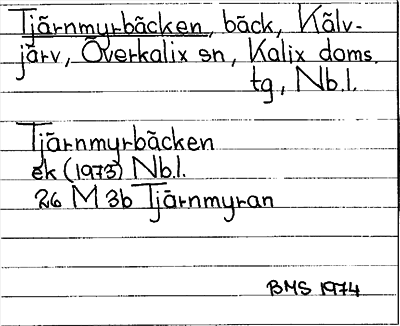 Tjärnmyrbäcken, bäck, Kälv-
järv, Överkalix sn, Kalix doms.
tg, Nb.l.
Tjärnmyrbäcken
ek (1973) Nb.l.
26 M 3b Tjärnmyran
BMS 1974